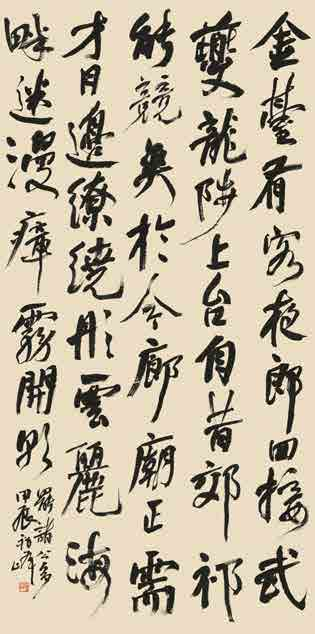 金臺有客夜郎回接武
夔龍陟上台自昔郊祁
能競爽於今廊廟正需
才日邊繚繞彤雲麗海
畔迷漫瘴霧開
甲辰